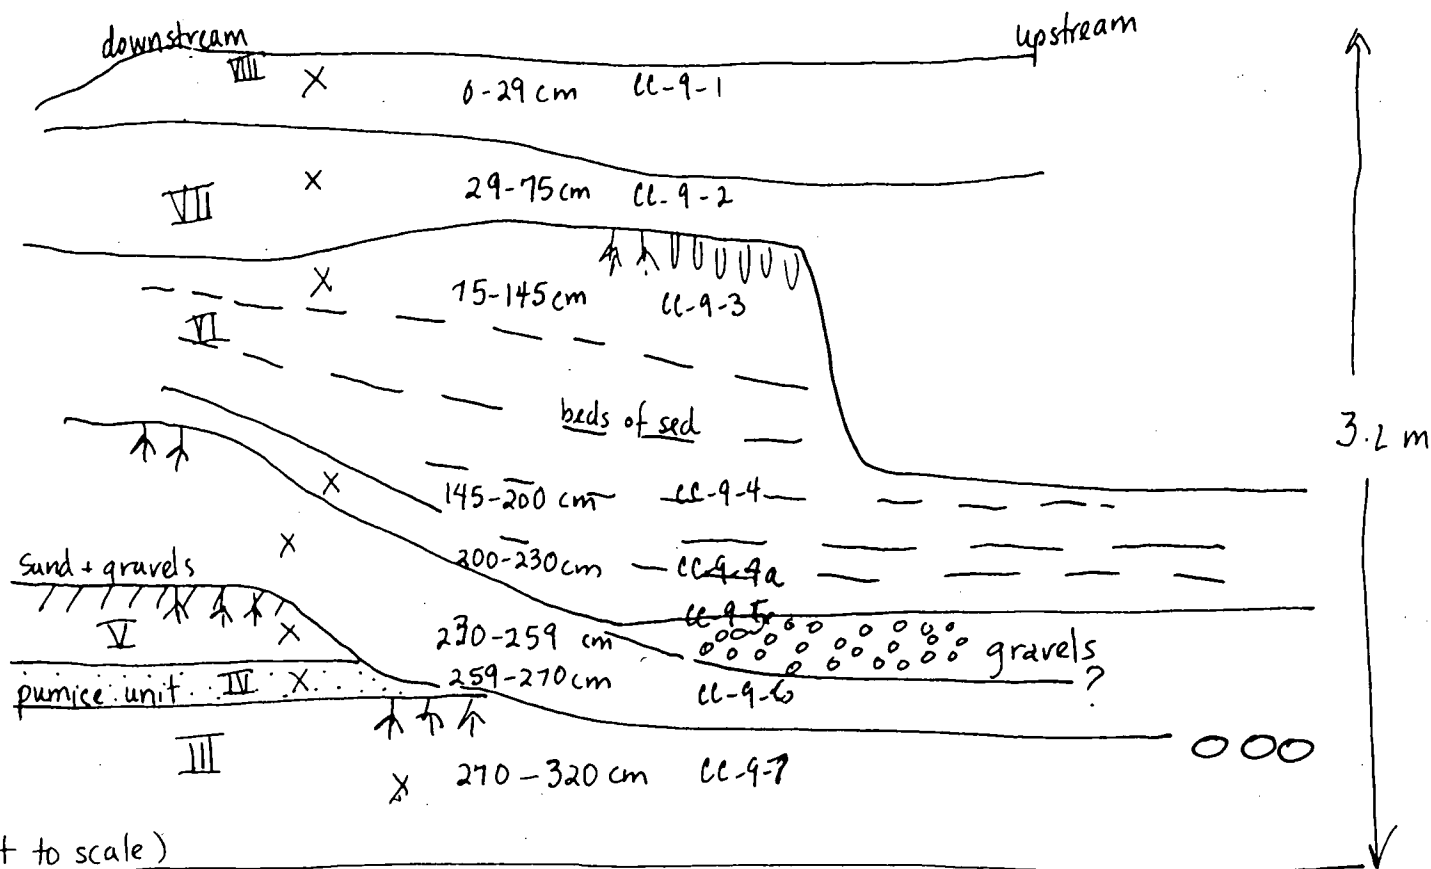 downstream upstream
VIII X 0-29 cm CC-9-1
VII X 29-75 cm CC-9-2
X 75-145 cm CC-9-3
VI
beds of sed
3.2 m
X 145-200 cm CC-9-4
X 200-230 cm CC-9-4a
sand + gravels
CC-9-5
V X 230-259 cm gravels
pumice unit IV X 259-270 cm CC-9-6 ?
III X 270-320 cm CC-9-7
t to scale)